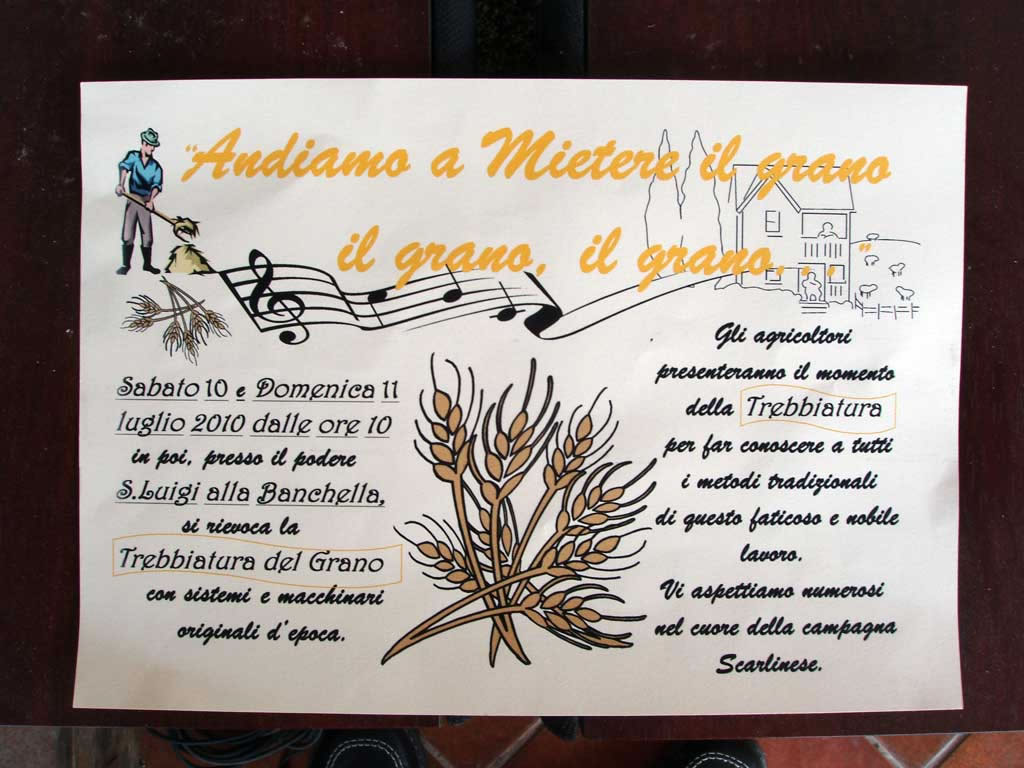 "Andiamo a Mietere il grano
il grano, il grano...."
Sabato 10 e Domenica 11
luglio 2010 dalle ore 10
in poi, presso il podere
S.Luigi alla Banchella,
si rievoca la
Trebbiatura del Grano
con sistemi e macchinari
originali d'epoca.
Gli agricoltori
presenteranno il momento
della Trebbiatura
per far conoscere a tutti
i metodi tradizionali
di questo faticoso e nobile
lavoro.
Vi aspettiamo numerosi
nel cuore della campagna
Scarlinese.